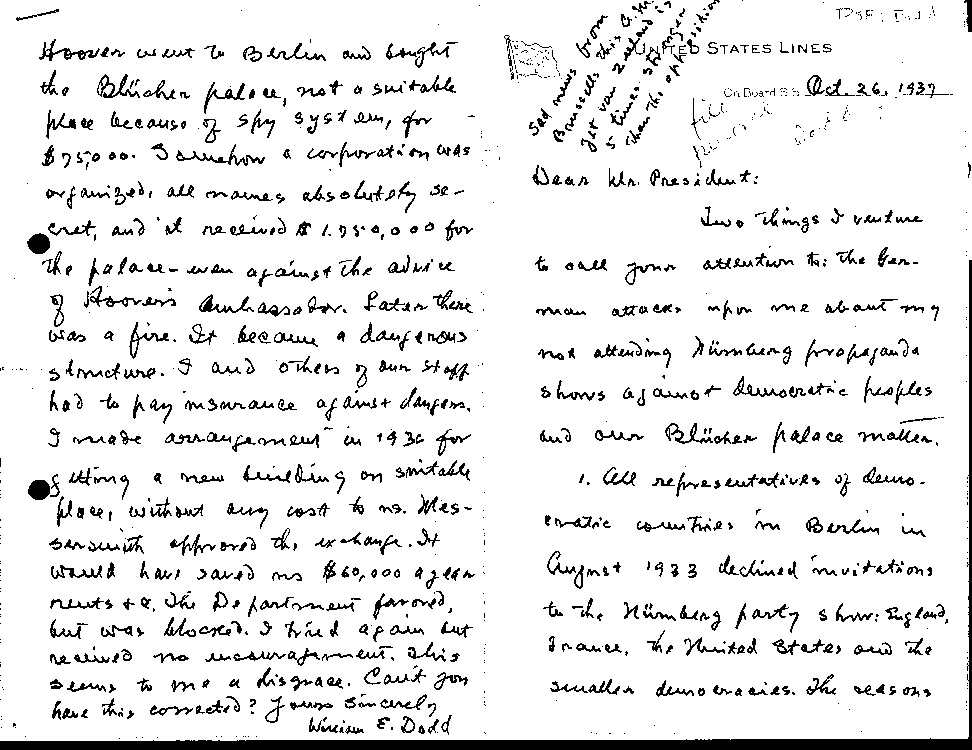 Hoover went to Berlin and bought
the Blücher palace, not a suitable
place because of spy system, for
$75,000. Somehow a corporation was
organized, all names absolutely se-
cret, and it received $1.750,000 for
the palace - even against the advice
of Hoover's Ambassador. Later there
was a fire. It became a dangerous
structure. I and others of our staff
had to pay insurance against dangers.
I made arrangement in 1936 for
getting a new building on suitable
place, without any cost to us. Mes-
sersmith approved the exchange. It
would have saved us $60,000 a year
rents &c. The Department favored,
but was blocked. I tried again but
received no encouragement. This
seems to me a disgrace. Can't you
have this corrected? Yours Sincerely
William E. Dodd
Sad news from
Brussells this a.m.
yet van Zeeland is
5 times stronger
than the opposition
UNITED STATES LINES
On Board S.S. Oct. 26, 1937
file
personal
Dodd
Dear Mr. President:
Two things I venture
to call your attention to: the Ger-
man attacks upon me about my
not attending Nürnberg propaganda
shows against democratic peoples
and our Blücher palace matter.
1. All representatives of demo-
cratic countries in Berlin in
August 1933 declined invitations
to the Nürnberg party show: England,
France, the United States and the
smaller democracies. The reasons